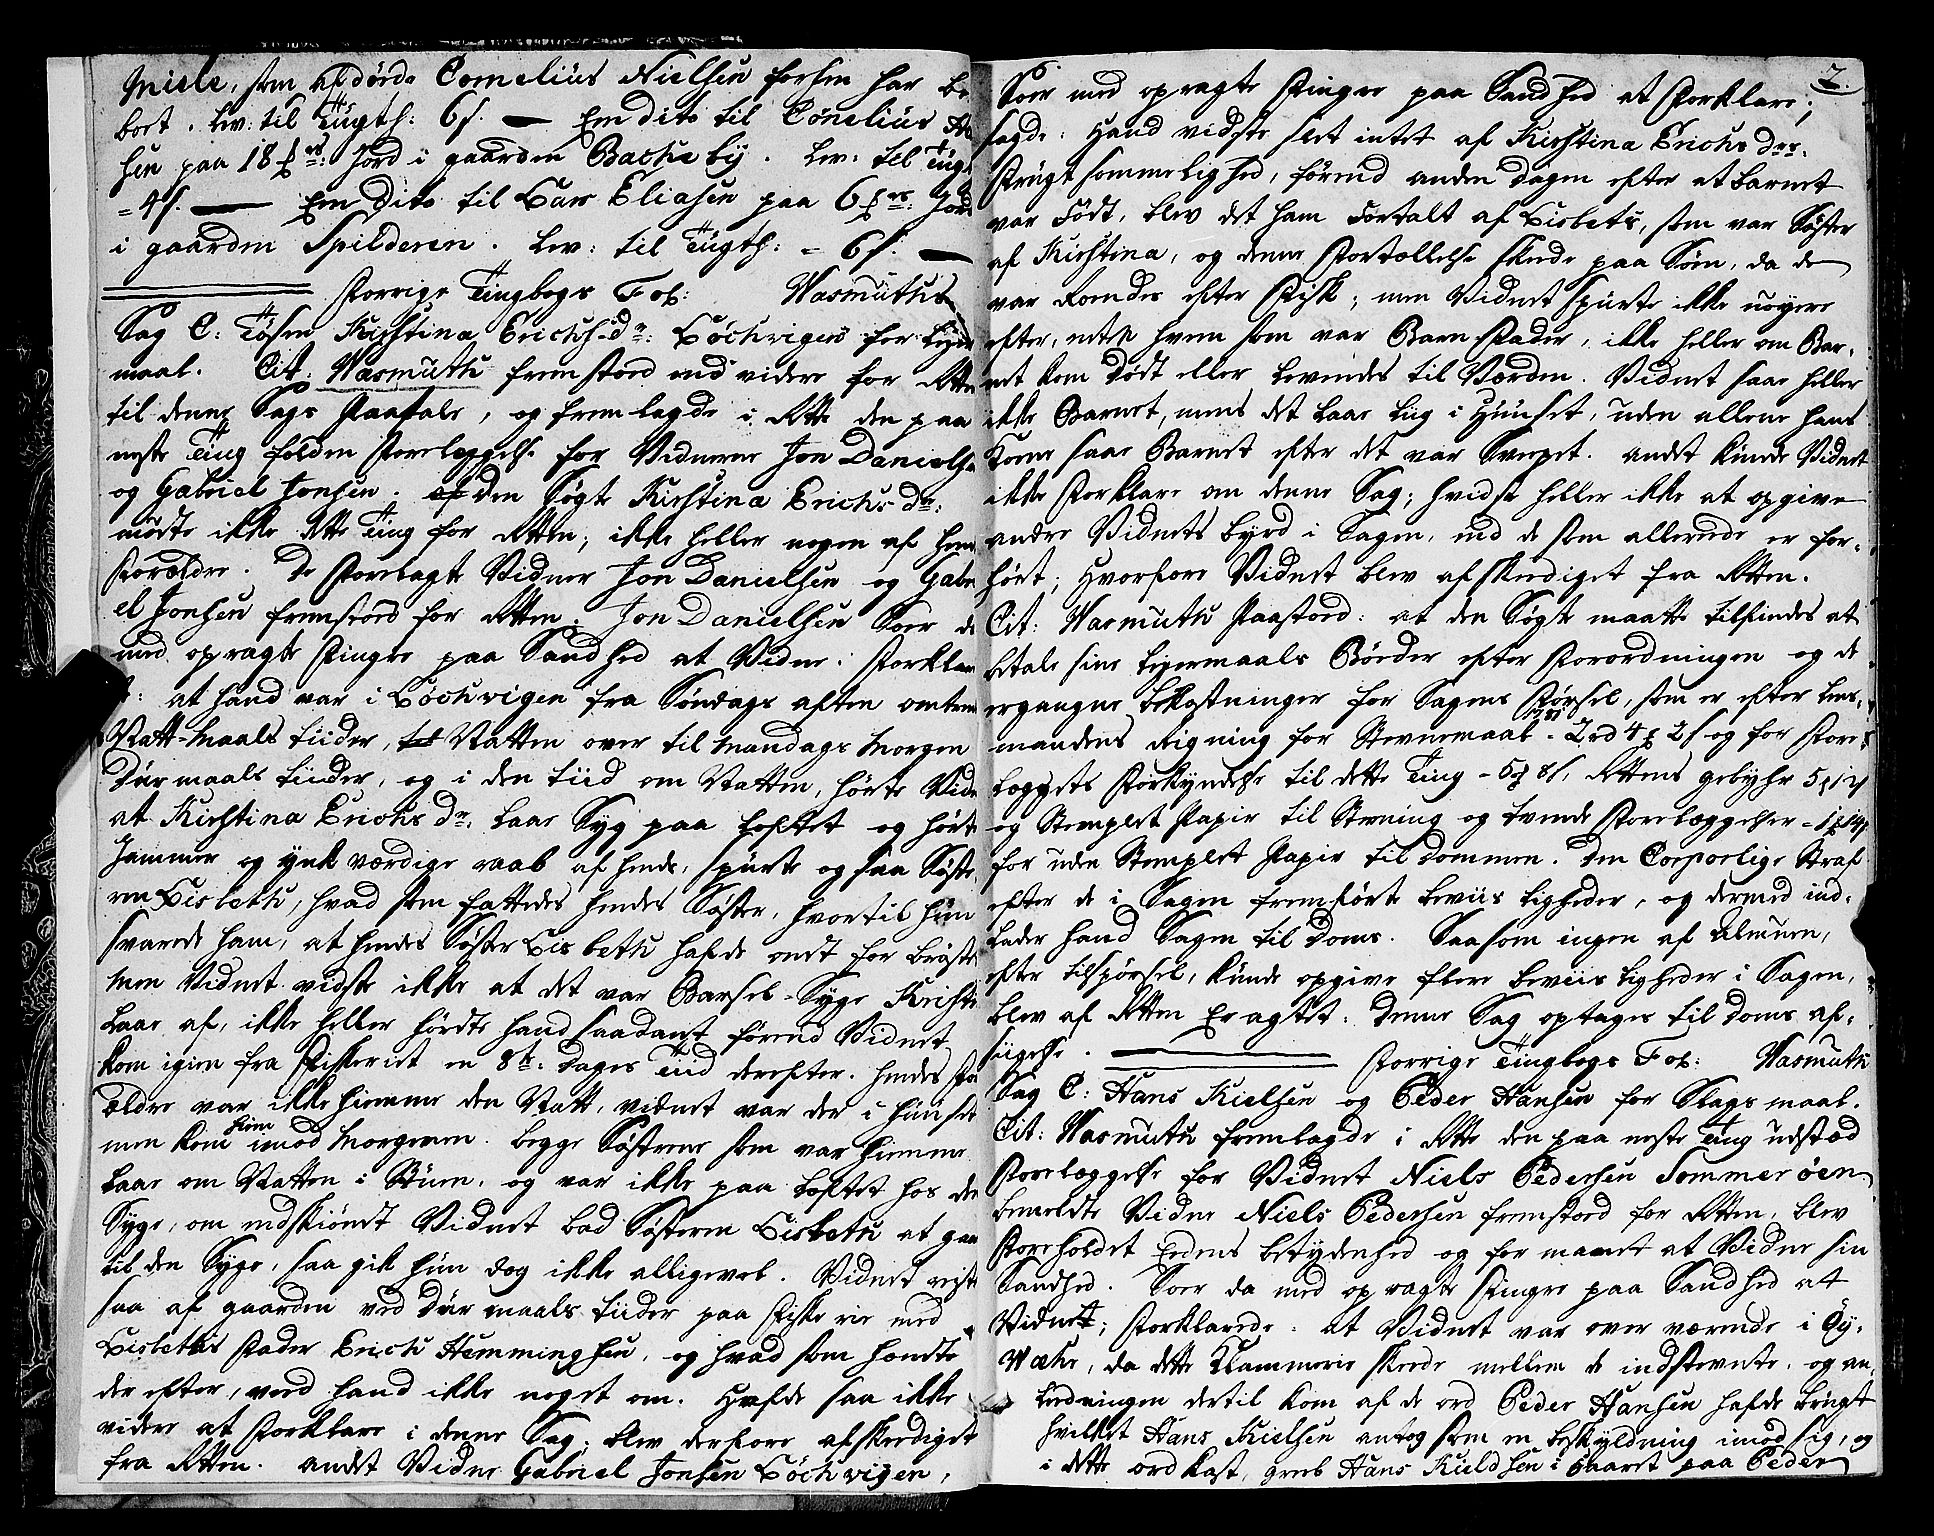 Miele, som afdøde Cornelius Nielsen forhen har be
boet. lev: til Tugth: 6 s. — Een dito til Cornelius
sen paa 18 Jord i gaarden Bachebÿ. lev: til Tugt
= 4 s. — Een Dito til Lars Eliasen paa 6 Jord
i gaarden Spilderen. lev: til Tugth: = 6 s. —
Forrige Tingbogs Fol: Wasmuths
Sag C: Tøsen Kirstina Erichs dr: Løchvigen for Leÿer
maal. Cit: Wasmuth fremstoed end videre for Rtten
til denne Sags Paatale, og fremlagde i Rtte den paa
neste Ting falden Forelæggelse for Vidnerne Jon Danielse
og Gabriel Jonsen. Den Søgte Kirstina Erichs dr:
mødte ikke dette Ting for Rtten; ikke heller nogen af hen
Forældre. De Forelagte Vidner Jon Danielsen og Gabri
el Jonsen fremstoed for Rtten. Jon Danielsen Soer da
med opragte Fingre paa Sandhed at Vidne. Forklare
at hand var i Løchvigen fra Søndags aften omtren
Natt-Maals tiider, Natten over til Mandags Morgen
Duur maals tiider, og i den tiid om Natten, hørte Vidn
at Kirstina Erichs dr: laae Sÿg paa loftet og hørte
Jammer og ynkværdige raab af hende, spurte og saa Søste
ren Lisbeth, hvad som fattedes hendes Søster, hvortil hun
svarede ham, at hendes Søster Lisbeth hafde ondt for brøste
Men Vidnet vidste ikke at det var Barsel-Sÿge Kirsti
laae af, ikke heller hørdte hand saadant førend Vidnet
kom igien fra Fiskeriet en 8te dages Tiid derefter. hendes For
ældre var ikke hiemme den Natt, vidnet var der i huuset
men kom hiem imod Morgenen. begge Søstrene som var hiemme
laae om Natten i Stuen, og var ikke paa loftet hos den
Sÿge, om endskiøndt Vidnet bad Søsteren Lisbeth at gaa
til den Sÿge, saa gik hun dog ikke alligevel. Vidnet reiste
saa af gaarden ved Duur maals tiider paa Fiskerie med
Lisbeths Fader Erich Hemmingsen, og hvad som hændte
der efter, veed hand ikke noget om. Hafde saa ikke
videre at Forklare i denne Sag, blev derfore afskediget
fra Rtten. andet Vidne Gabriel Jonsen Løchvigen,
2.
Soer med opragte Fingre paa Sandhed at Forklare;
sagde: Hand vidste slet intet af Kirstina Erichs drs:
Frugtsommelighed, førend anden dagen efter at barnet
var Født, blev det ham Fortalt af Lisbets, som var Søster
af Kirstina, og denne Fortællelse skeede paa Søen, da de
var Roendes efter Fisk; men Vidnet spurte ikke nøyere
efter, enten hvem som var Barn Fader, ikke heller om Bar-
net kom dødt eller levendes til Verden. Vidnet saae heller
ikke Barnet, mens det laae Liig i Huuset, uden allene hans
Kone saae Barnet efter det var Svøpet. andet kunde Vidnet
ikke Forklare om denne Sag; hvidste heller ikke at opgive
andre Vidnets bÿrd i Sagen, end de som allerede er for-
hørt; Hvorfore Vidnet blev afskediget fra Rtten.
Cit: Wasmuth Paastoed: at den Søgte maatte tilfindes at
betale sine leyermaals Bøder efter Forordningen og de
ergangne bekostninger for Sagens Førsel, som er efter lens-
mandens Reigning for Stevnemaal - 2 rd 4 2 s og for Fore-
læggets Forkÿndelse til dette Ting - 5 8 s, Rttens gebyhr
og Stemplet Papir til Stevning og tvende Forelæggelser
for uden Stemplet Papir til Dommen. Den Corporlige Straf
efter de i Sagen fremførte beviisligheder, og dermed ind-
lader hand Sagen til Doms. Saasom ingen af almuen,
efter tilspørsel, kunde opgive flere beviisligheder i Sagen,
blev af Rtten Eragtet: Denne Sag optages til Doms af-
siigelse. — Forrige Tingbogs Fol: Wasmuth
Sag C: Hans Kielsen og Peder Hansen for Slagsmaal.
Cit: Wasmuth fremlagde i Rtte den paa neste Ting udstæd
Forelæggelse for Vidnet Niels Pedersen Sommerøen
bemeldte Vidne Niels Pedersen fremstoed for Rtten, blev
Foreholdet Eedens betydenhed og formanet at Vidne sin
Sandhed. Soer da med opragte Fingre paa Sandhed at
Vidnet; Forklarede. at Vidnet var overværende i Øÿ-
Wæhr, da dette Klammerie skeede mellem de indstevnte, og an-
ledningen dertil kom af de ord Peder Hansen hafde brugt
hvilket Hans Kielsen antog som en beskÿldning imod sig, og
i dette ordkast, greeb Hans Kieldsen i haaret paa Peder